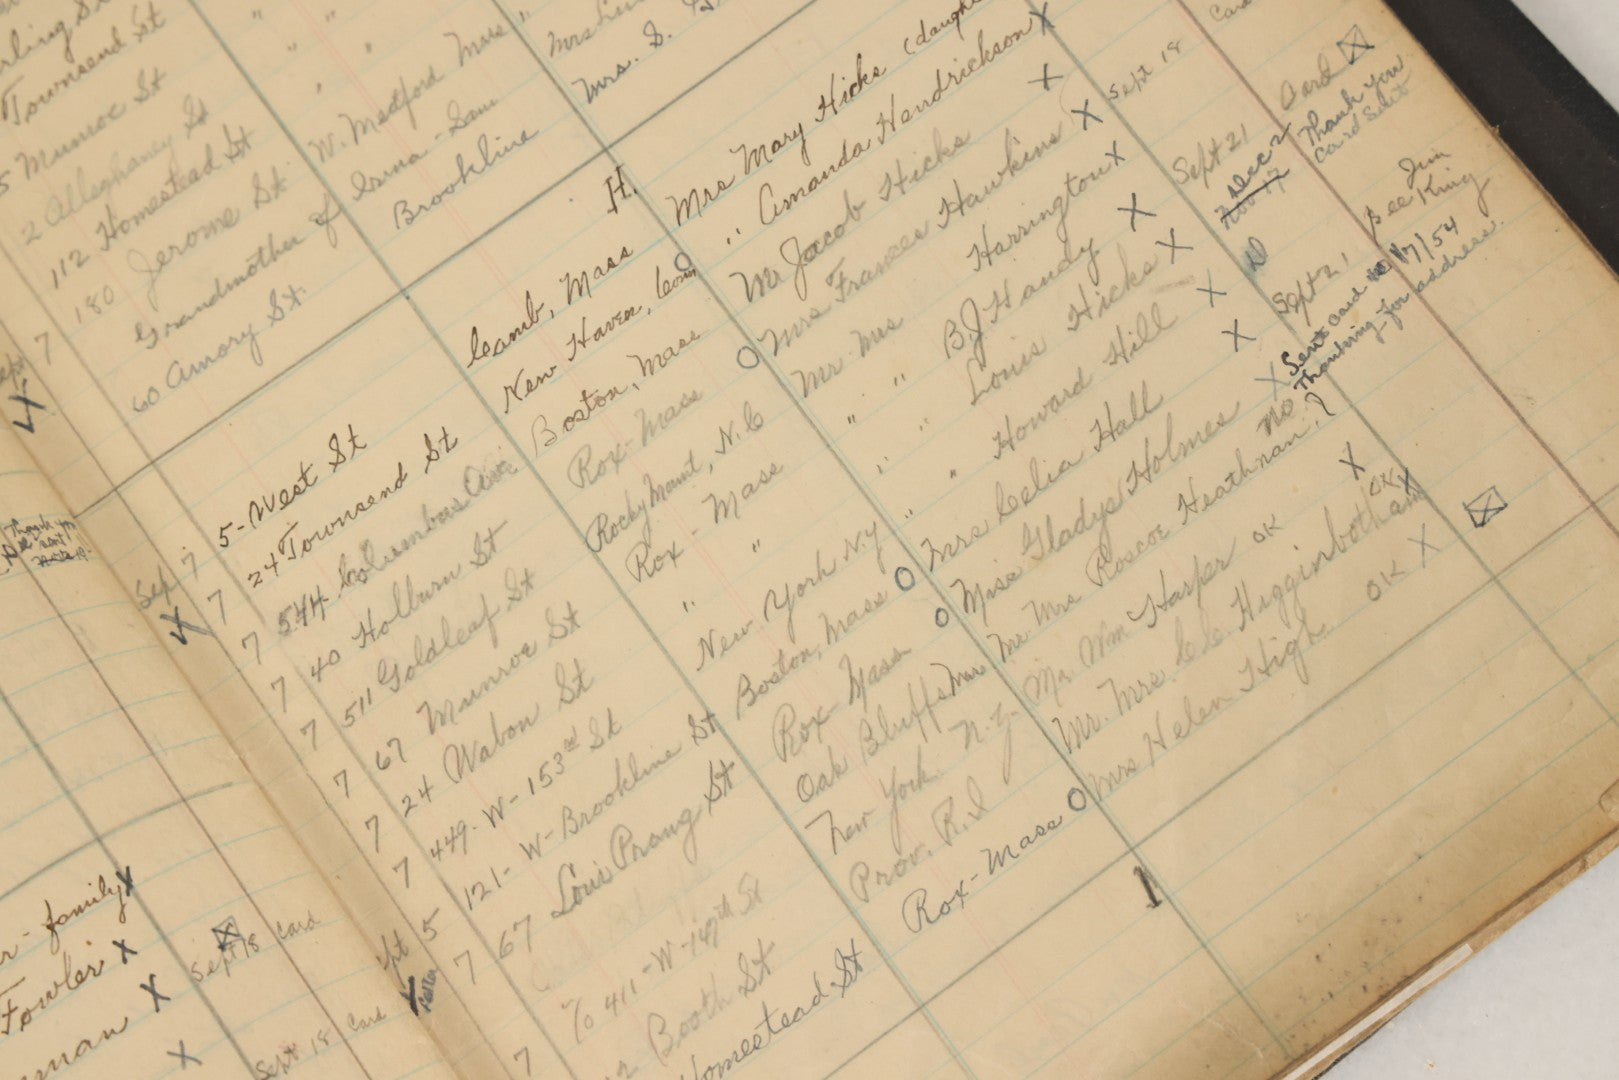 Townsend St
Munroe St
2 Alleghaney St
112 Homestead St W. Medford Mass
180 Jerome St
Grandmother of
Brookline
60 Amory St.
Mrs. S.
H.
Mrs Mary Hicks
5-West St Camb, Mass " Amanda Hendrickson X
24 Townsend St New Haven, Conn Mr Jacob Hicks X Sept 18
544 Columbus Ave Boston, Mass Mrs Frances Hawkins X
40 Holburn St Rox-Mass Mr Mrs Harrington X Sept 21 Card
Dec 2
Nov 17
Thank you
Card Sent
511 Goldleaf St Rocky Mount, N.C " B.J Handy X
67 Munroe St Rox-Mass " " Louis Hicks X
24 Wabon St " " " Howard Hill X Sept 21
See Jim
King
449-W-153rd St New York N.Y Mrs Celia Hall X
Sent card 1/7/54
Thanking for address.
121-W-Brookline St Boston, Mass Miss Gladys Holmes X
67 Loui Prang St Rox-Mass Mr Mrs Roscoe Heathman? no
Oak Bluffs Mass Mr. Wm Harper OK X
411-W-149th St New York N.Y. Mr. Mrs. Higginbotham OK X
Booth St Prov. R.I Mrs Helen High OK X
Homestead St Rox-Mass
Sep 7
7
7
7
7
7
7
7
5
7
7
family X
Fowler X
X Sept 18 Card
X Sept 18 Card